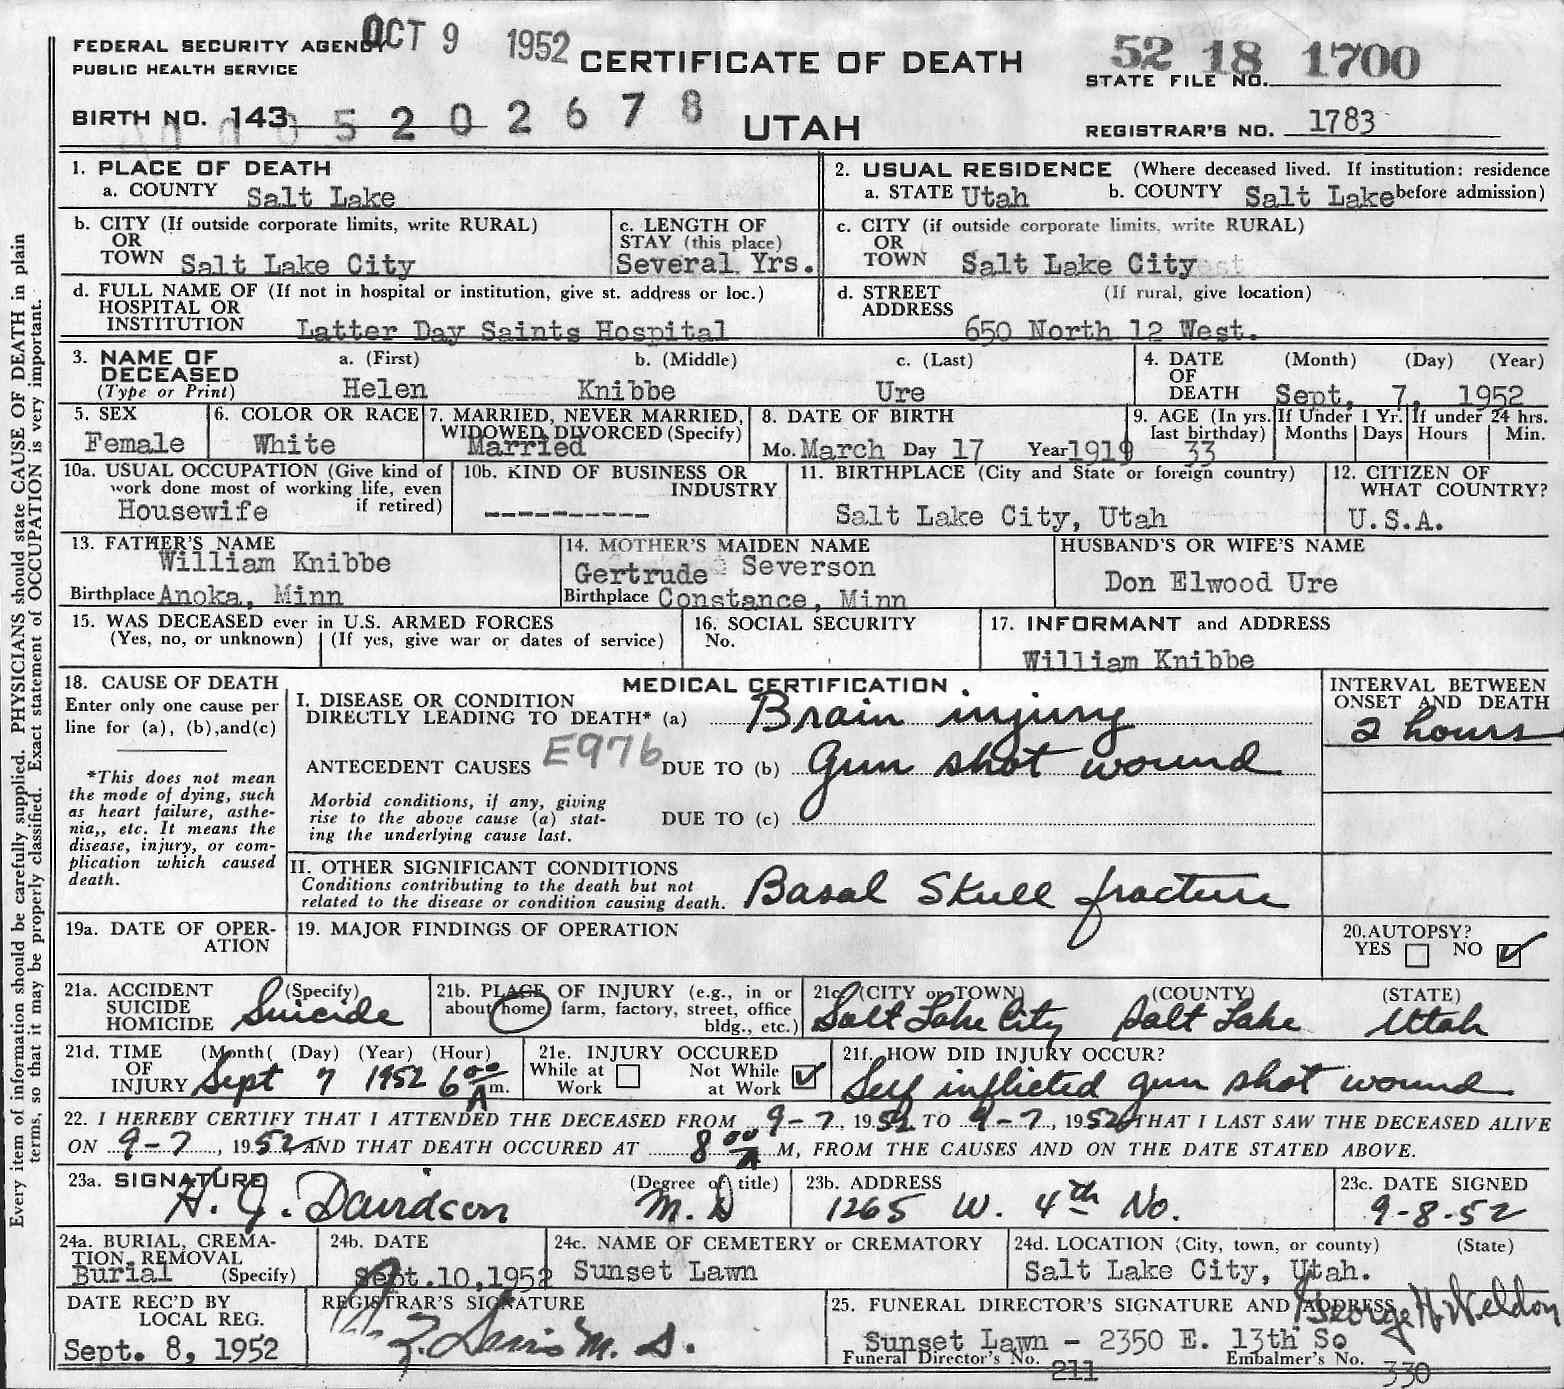 OCT 9 1952
FEDERAL SECURITY AGENCY
PUBLIC HEALTH SERVICE
CERTIFICATE OF DEATH
52 18 1700
STATE FILE NO.
BIRTH NO. 143 5 2 0 2 6 7 8
UTAH
REGISTRAR'S NO. 1783
Every item of information should be carefully supplied. PHYSICIANS should state CAUSE OF DEATH in plain
terms, so that it may be properly classified. Exact statement of OCCUPATION is very important.
1. PLACE OF DEATH
a. COUNTY Salt Lake
2. USUAL RESIDENCE (Where deceased lived. If institution: residence
a. STATE Utah b. COUNTY Salt Lake before admission)
b. CITY (If outside corporate limits, write RURAL)
OR
TOWN Salt Lake City
c. LENGTH OF
STAY (this place)
Several Yrs.
c. CITY (if outside corporate limits, write RURAL)
OR
TOWN Salt Lake City
d. FULL NAME OF (If not in hospital or institution, give st. address or loc.)
HOSPITAL OR
INSTITUTION Latter Day Saints Hospital
d. STREET (If rural, give location)
ADDRESS
650 North 12 West.
3. NAME OF DECEASED
(Type or Print)
a. (First) b. (Middle) c. (Last)
Helen Knibbe Ure
4. DATE OF DEATH (Month) (Day) (Year)
Sept. 7, 1952
5. SEX
Female
6. COLOR OR RACE
White
7. MARRIED, NEVER MARRIED,
WIDOWED DIVORCED (Specify)
Married
8. DATE OF BIRTH
Mo. March Day 17 Year 1919
9. AGE (In yrs.
last birthday)
33
If Under 1 Yr.
Months Days
If under 24 hrs.
Hours Min.
10a. USUAL OCCUPATION (Give kind of
work done most of working life, even
if retired)
Housewife
10b. KIND OF BUSINESS OR
INDUSTRY
----------
11. BIRTHPLACE (City and State or foreign country)
Salt Lake City, Utah
12. CITIZEN OF
WHAT COUNTRY?
U.S.A.
13. FATHER'S NAME
William Knibbe
Birthplace Anoka, Minn
14. MOTHER'S MAIDEN NAME
Gertrude Severson
Birthplace Constance, Minn
HUSBAND'S OR WIFE'S NAME
Don Elwood Ure
15. WAS DECEASED ever in U.S. ARMED FORCES
(Yes, no, or unknown) (If yes, give war or dates of service)
16. SOCIAL SECURITY
No.
17. INFORMANT and ADDRESS
William Knibbe
18. CAUSE OF DEATH
Enter only one cause per
line for (a), (b), and (c)
*This does not mean
the mode of dying, such
as heart failure, asthe-
nia,, etc. It means the
disease, injury, or com-
plication which caused
death.
MEDICAL CERTIFICATION
I. DISEASE OR CONDITION
DIRECTLY LEADING TO DEATH* (a) Brain injury
E976
ANTECEDENT CAUSES DUE TO (b) Gun shot wound
Morbid conditions, if any, giving
rise to the above cause (a) stat-
ing the underlying cause last.
DUE TO (c)
INTERVAL BETWEEN
ONSET AND DEATH
2 hours
II. OTHER SIGNIFICANT CONDITIONS
Conditions contributing to the death but not
related to the disease or condition causing death.
Basal Skull fracture
19a. DATE OF OPER-
ATION
19. MAJOR FINDINGS OF OPERATION
20. AUTOPSY?
YES NO
21a. ACCIDENT
SUICIDE
HOMICIDE
(Specify)
Suicide
21b. PLACE OF INJURY (e.g., in or
about home, farm, factory, street, office
bldg., etc.)
21c. (CITY or TOWN) (COUNTY) (STATE)
Salt Lake City Salt Lake Utah
21d. TIME OF INJURY
(Month) (Day) (Year) (Hour)
Sept 7 1952 6 00 A m.
21e. INJURY OCCURED
While at Work Not While at Work
21f. HOW DID INJURY OCCUR?
Self inflicted gun shot wound
22. I HEREBY CERTIFY THAT I ATTENDED THE DECEASED FROM 9-7, 1952 TO 9-7, 1952 THAT I LAST SAW THE DECEASED ALIVE
ON 9-7, 1952 AND THAT DEATH OCCURED AT 8 00 A M, FROM THE CAUSES AND ON THE DATE STATED ABOVE.
23a. SIGNATURE (Degree or title)
H. J. Davidson M. D
23b. ADDRESS
1265 W. 4th No.
23c. DATE SIGNED
9-8-52
24a. BURIAL, CREMA-
TION, REMOVAL
Burial (Specify)
24b. DATE
Sept.10,1952
24c. NAME OF CEMETERY or CREMATORY
Sunset Lawn
24d. LOCATION (City, town, or county) (State)
Salt Lake City, Utah.
DATE REC'D BY
LOCAL REG.
Sept. 8, 1952
REGISTRAR'S SIGNATURE
M. D.
25. FUNERAL DIRECTOR'S SIGNATURE AND ADDRESS
George H. Weldon
Sunset Lawn - 2350 E. 13th So
Funeral Director's No. 211 Embalmer's No. 330